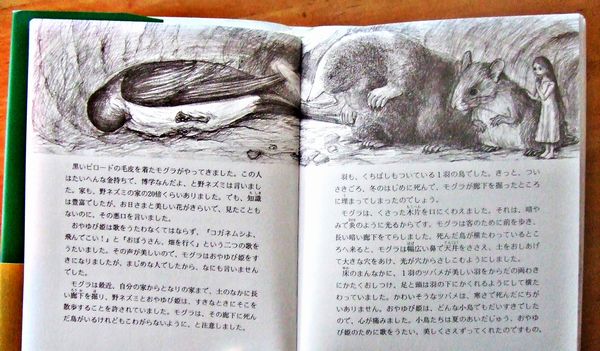 黒いビロードの毛皮を着たモグラがやってきました。この人
はたいへんな金持ちで、博学なんだよ、と野ネズミは言いまし
た。家も、野ネズミの家の20倍くらいありました。でも、知識
は豊富でしたが、お日さまと美しい花がきらいで、見たことも
ないのに、その悪口を言いました。
おやゆび姫は歌をうたわなくてはならず、「コガネムシよ、
飛んでこい！」と「おぼうさん、畑を行く」という二つの歌を
うたいました。その声が美しいので、モグラはおやゆび姫をす
きになりましたが、まじめな人でしたから、なにも言いません
でした。
モグラは最近、自分の家からとなりの家まで、土のなかに長
い廊下を掘り、野ネズミとおやゆび姫は、すきなときにそこを
散歩することを許されていました。モグラは、その廊下に死ん
だ鳥がいるけれどもこわがらないように、と注意しました。
羽も、くちばしもついている1羽の鳥でした。きっと、つい
さきごろ、冬のはじめに死んで、モグラが廊下を掘ったところ
に埋まってしまったのでしょう。
モグラは、くさった木片を口にくわえました。それは、暗や
みで炎のように光るからです。モグラは客のために前を歩き、
長い暗い廊下をてらしました。死んだ鳥が横たわっているとこ
ろへ来ると、モグラは幅広い鼻で天井をささえ、土をおしあげ
て大きな穴をあけ、光が穴からさしこむようにしました。
床のまんなかに、1羽のツバメが美しい羽をからだの両わき
にかたくおしつけ、足と頭は羽の下にかくれるようにして横た
わっていました。かわいそうなツバメは、寒さで死んだにちが
いありません。おやゆび姫は、どんな小鳥でもだいすきでした
ので、心が痛みました。小鳥たちは夏のあいだじゅう、おやゆ
び姫のために歌をうたい、美しくさえずってくれたのですもの。